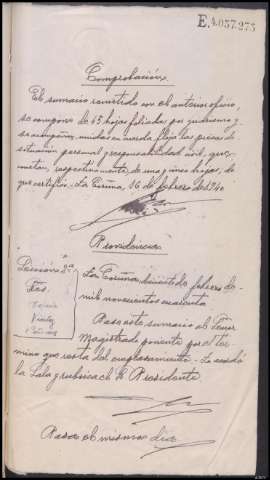 E.4.057.273
Comprobación
El sumario remitido con el anterior oficio,
se compone de 65 hojas foliadas por guarismos y
se acompañan, unidas en cuerda floja las piezas de
situación personal y responsabilidad civil, que
constan, respectivamente de una y cinco hojas, de
que certifico.- La Coruña, 16 de febrero de 1940
Providencia
Sección 2ª
Sres.
La Coruña, de febrero de
mil novecientos cuarenta
Pase este sumario al Señor
Magistrado ponente por el tér
mino que resta del emplazamiento.- Lo acordó
la Sala y rubrica el Sr. Presidente.
Pasa el mismo día